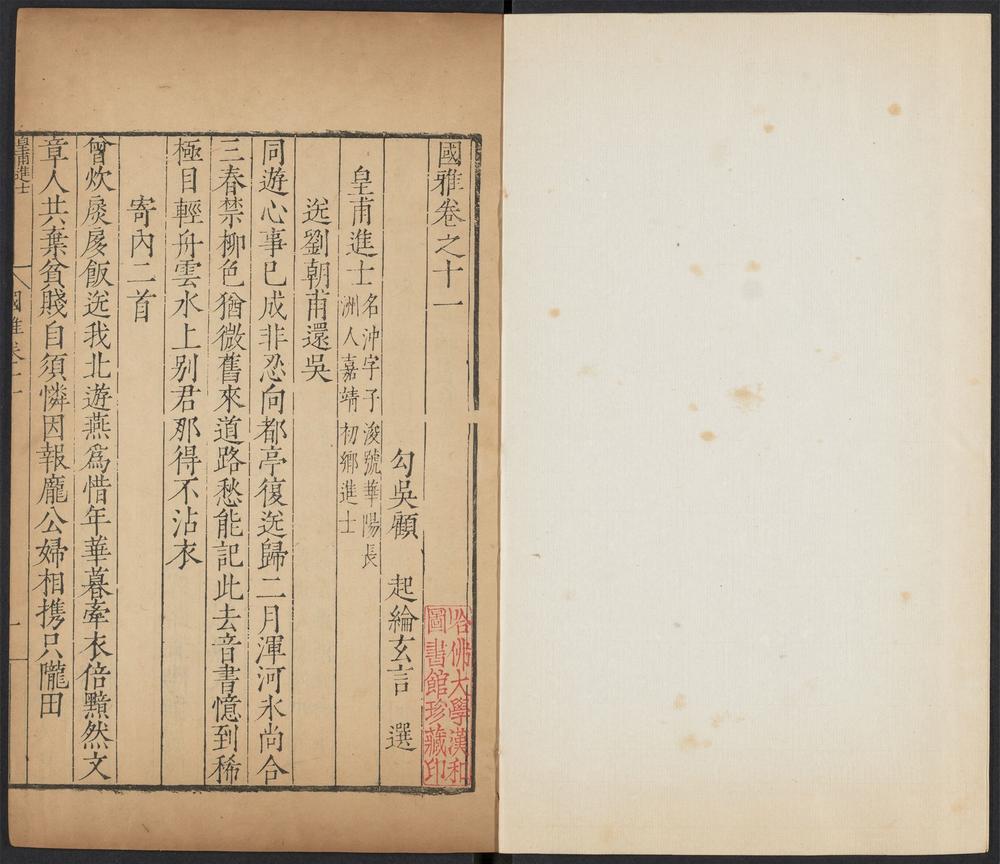 國雅卷之十一
勾吳顧 起綸玄言 選
皇甫進士
名沖字子浚號華陽長
洲人嘉靖初鄉進士
送劉朝甫還吳
同遊心事已成非忍向都亭復送歸二月渾河氷尚合
三春禁柳色猶微舊來道路愁能記此去音書憶到稀
極目輕舟雲水上别君那得不沾衣
寄内二首
曾炊扊扅飯送我北遊燕爲惜年華暮牽衣倍黯然文
章人共棄貧賤自須憐因報龐公婦相携只隴田
皇甫進士
國雅卷十一
一
哈佛大學漢和
圖書館珍藏印